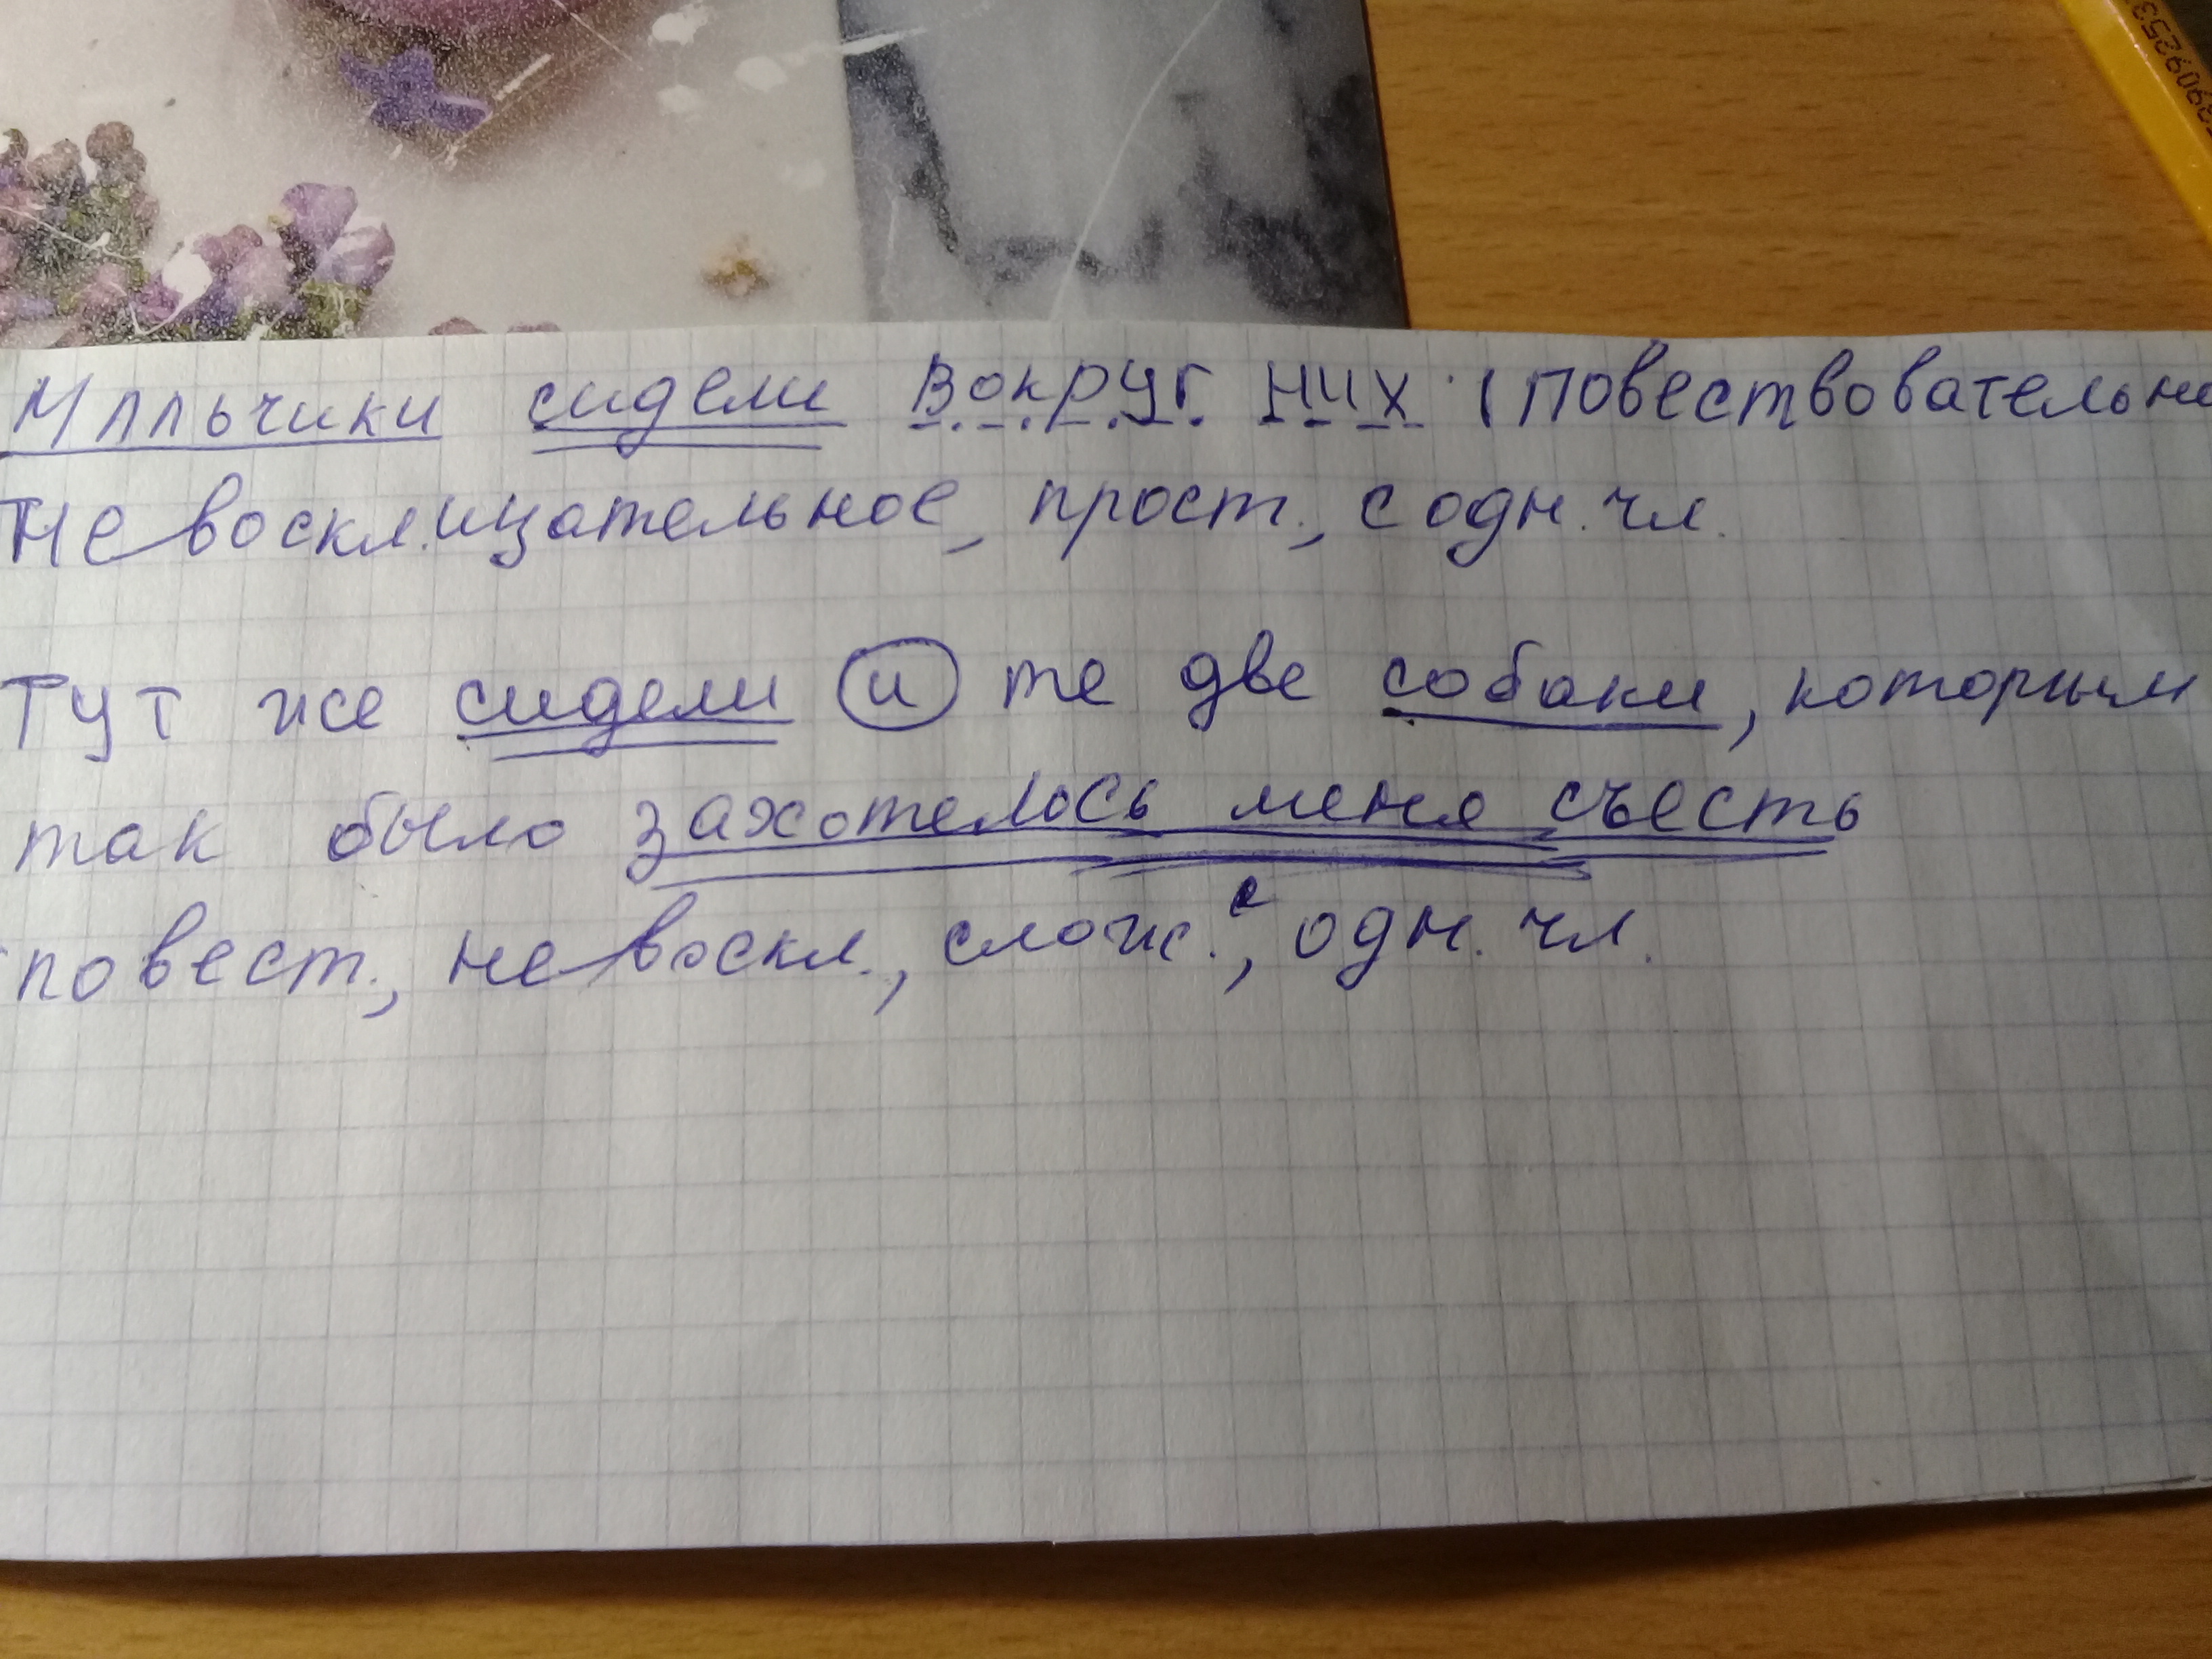 390925З
Мальчики сидели вокруг них. (Повествовательно
Невосклицательное, прост., с одн. чл.
Тут же сидели и те две собаки, которым
так было захотелось меня съесть
повест., невоскл., слож., с одн. чл.